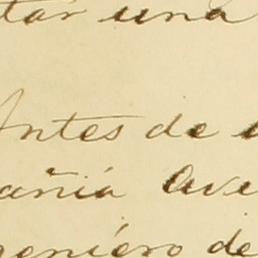 tar una
Antes de
añia Ave
geniero de